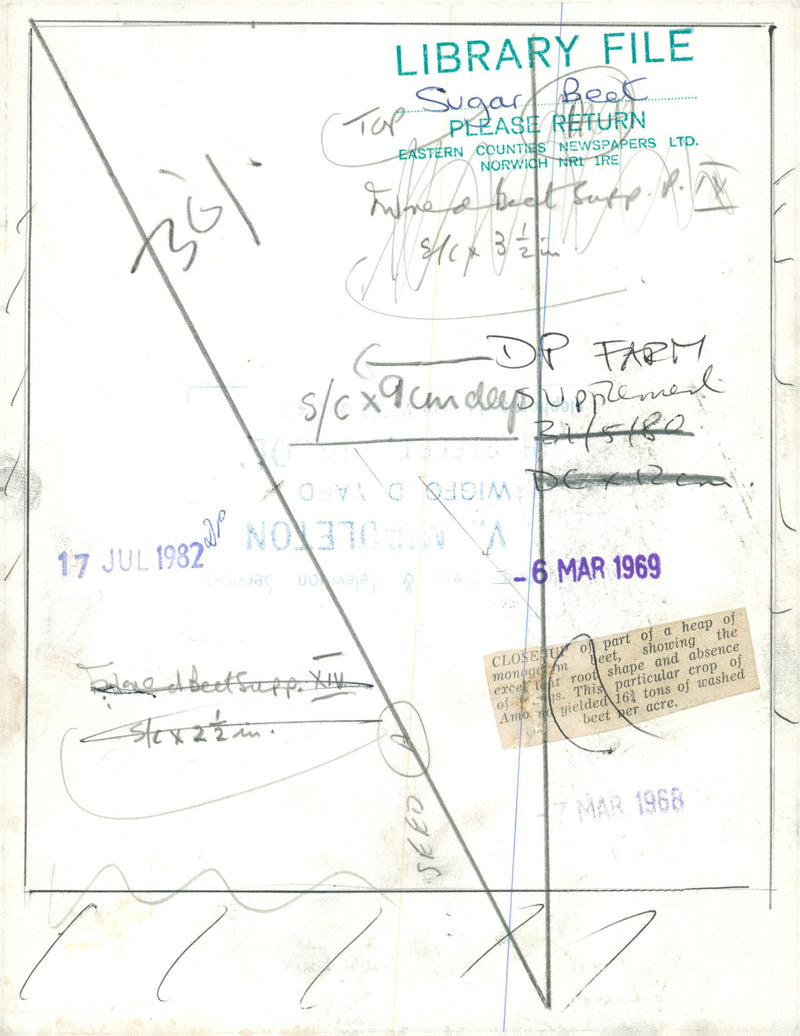 LIBRARY FILE
Sugar Beet
TOP
PLEASE RETURN
EASTERN COUNTIES NEWSPAPERS LTD.
NORWICH NR1 1RE
Beet Supp. P. IV
S/C x 3 1/2 in
DP FARM
S/C x 9cm deep
Supplement
31/5/80
DC x 12cm.
WIGFO D YARD
V. MIDDLETON
& Television Services
17 JUL 1982
- 6 MAR 1969
CLOSE-UP of part of a heap of
monogerm beet, showing the
excellent root shape and absence
of fangs. This particular crop of
Amono yielded 16¾ tons of washed
beet per acre.
Beet Supp. XIV
S/C x 2 1/2 in.
SEED A
- 7 MAR 1968